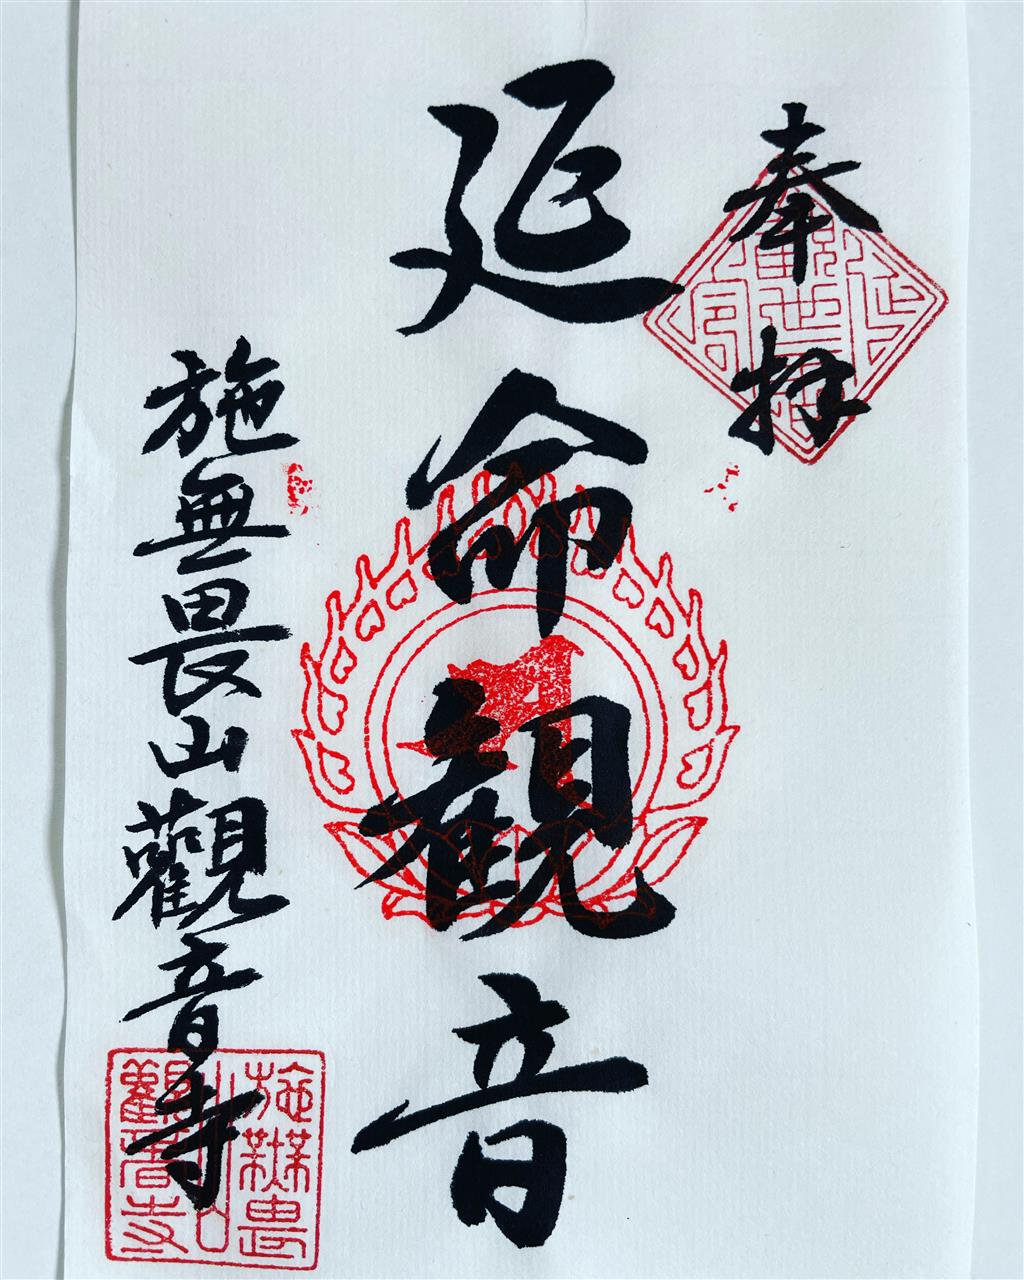 奉拝
延命観音
施無畏山觀音寺
施無畏山印觀音寺